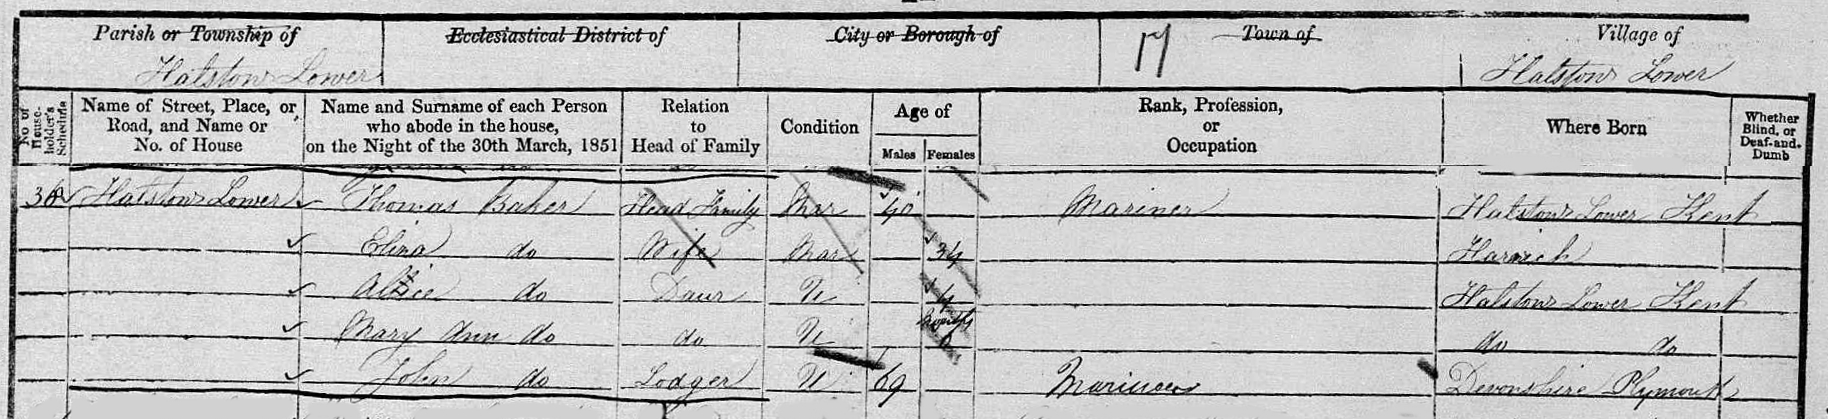 Parish or Township of Ecclesiastical District of City or Borough of 17 Town of Village of
Halstow Lower Halstow Lower
No of House-holder's Schedule Name of Street, Place, or Road, and Name or No. of House Name and Surname of each Person who abode in the house, on the Night of the 30th March, 1851 Relation to Head of Family Condition Age of Males Females Rank, Profession, or Occupation Where Born Whether Blind, or Deaf-and-Dumb
36 Halstow Lower Thomas Baker Head Family Mar 40 Mariner Halstow Lower Kent
Eliza do Wife Mar 34 Harwich
Alice do Daur U 4 Halstow Lower Kent
Mary Ann do do U Months do do
John do Lodger U 69 Mariner Devonshire Plymouth